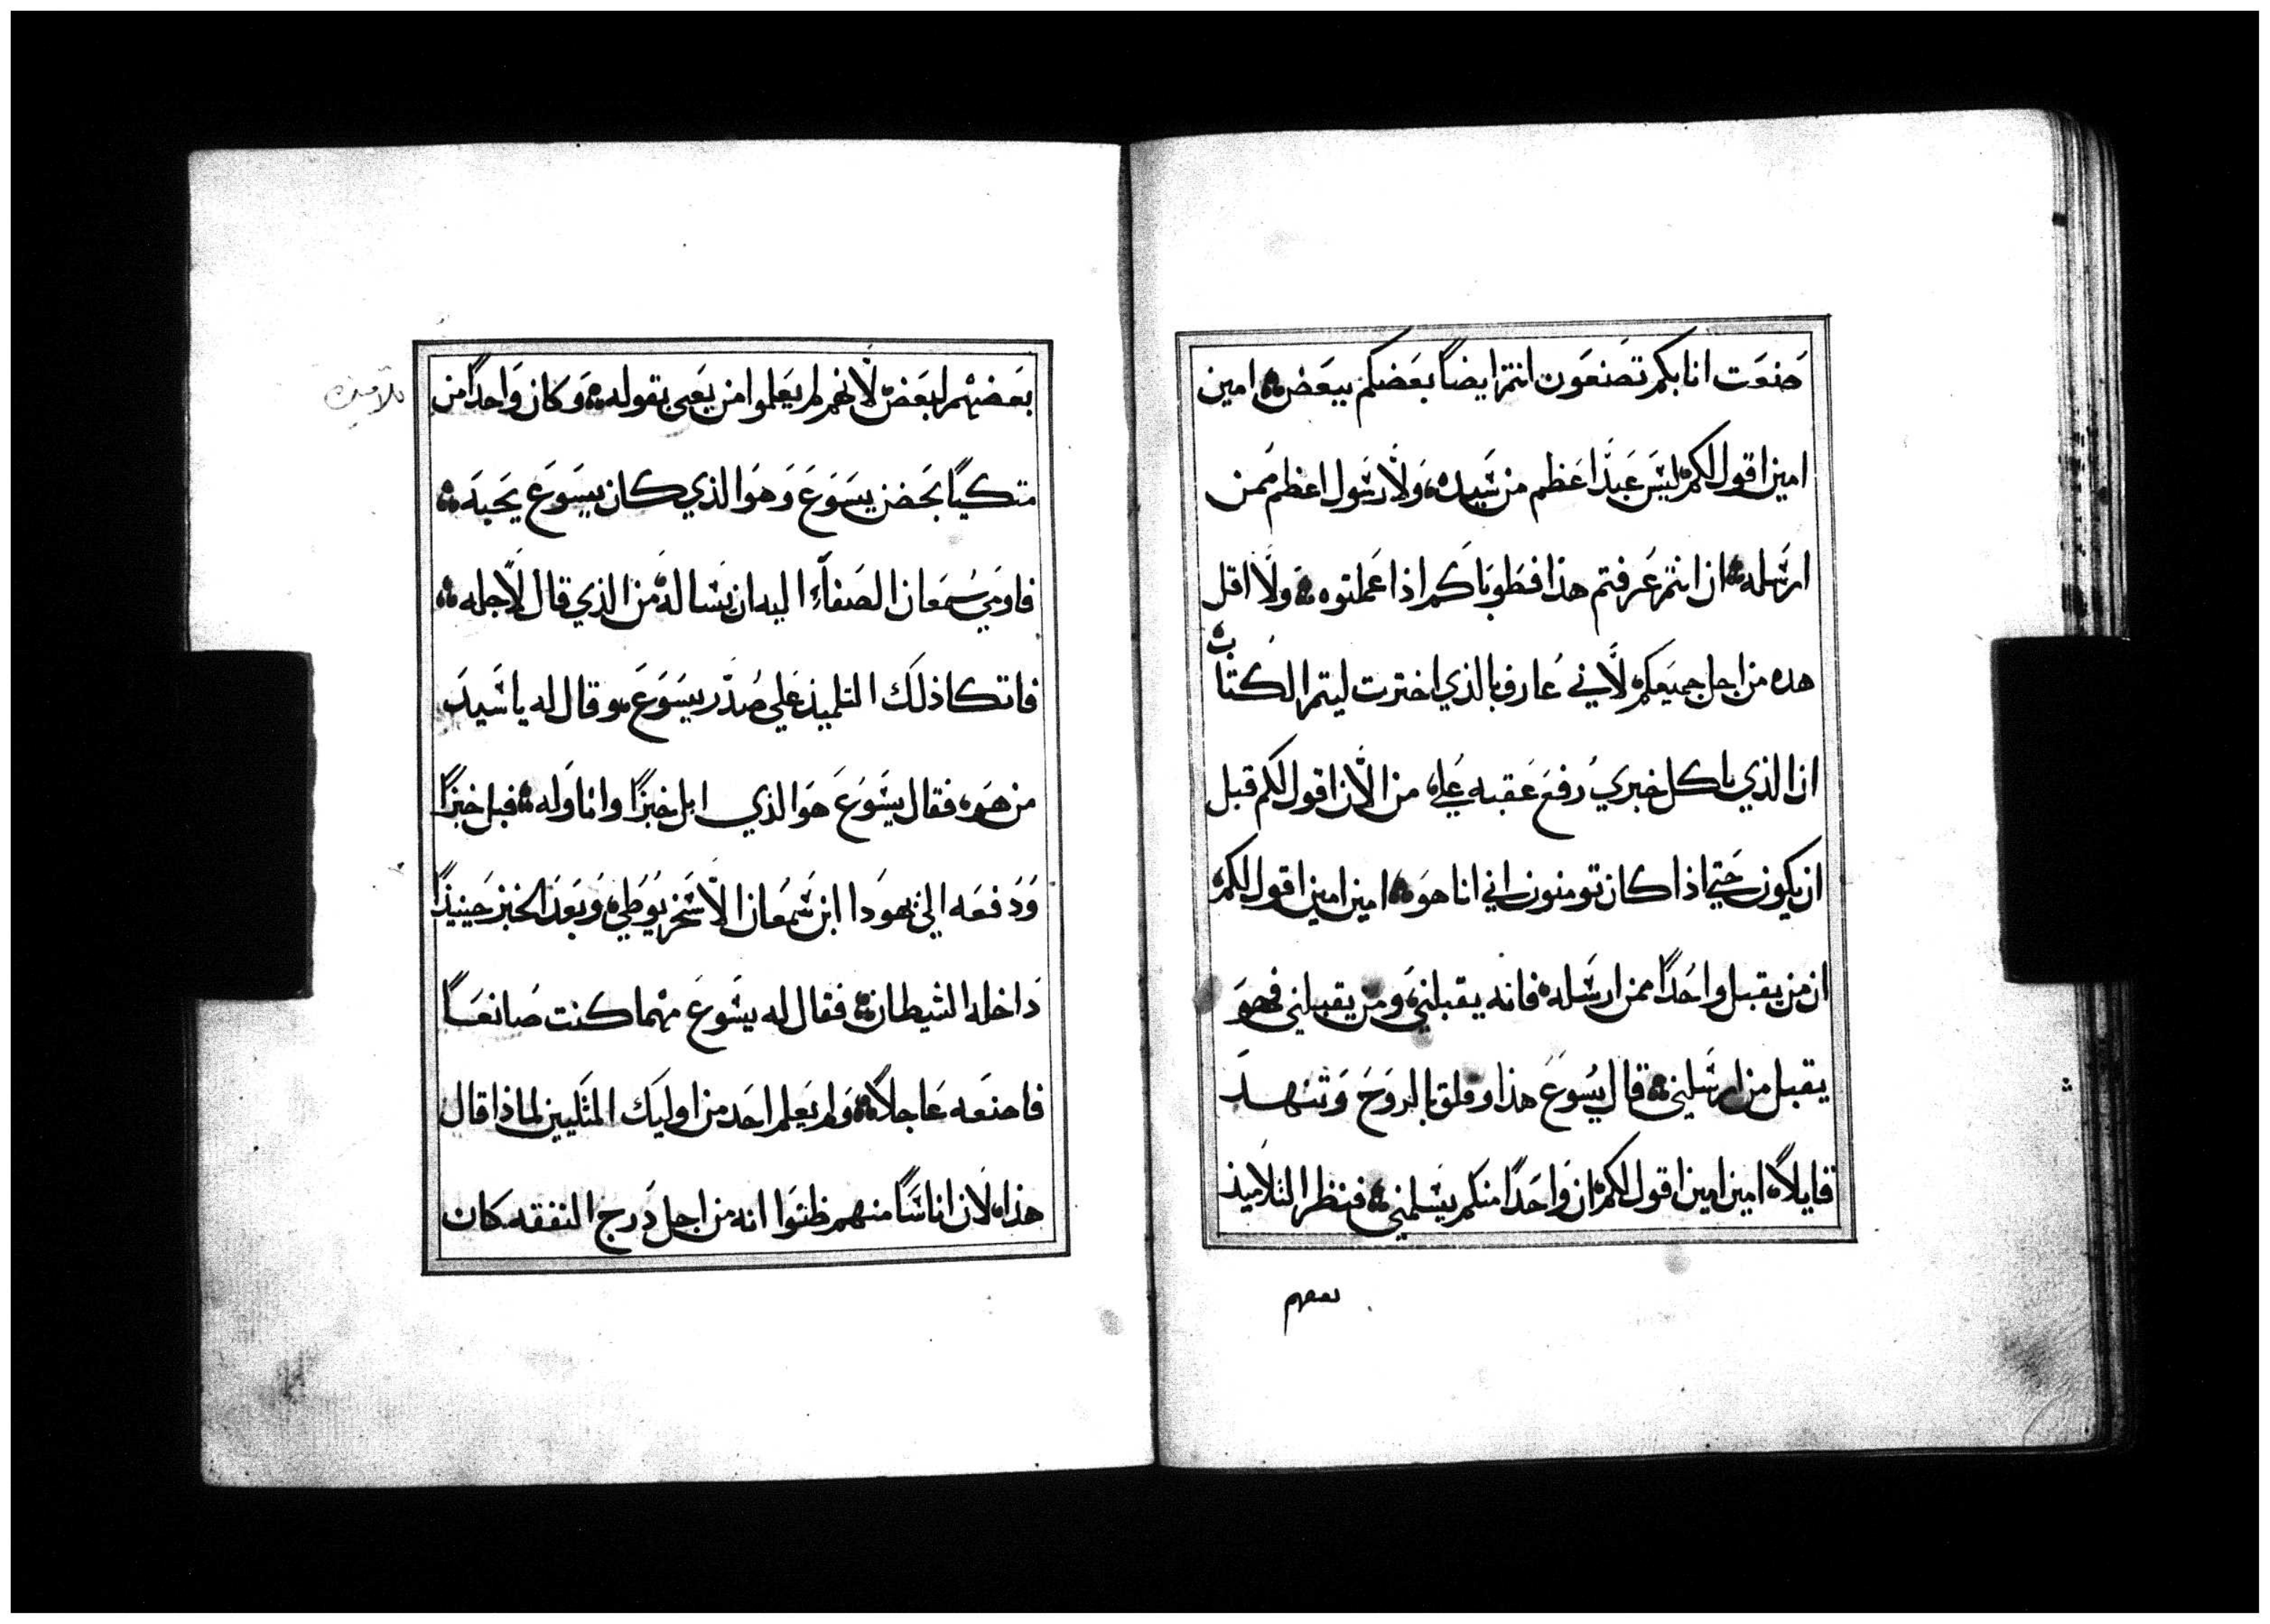 صنعت انا بكم تصنعون انتم ايضاً بعضكم ببعض امين
امين اقول لكم ليس عبدا اعظم من سيده ولا رسول اعظم ممن
ارسله ان انتم عرفتم هذا فطوباكم اذا عملتوه ولا اقل
هده من اجل جميعكم لاني عارف بالذي اخترت ليتم الكتاب
ان الذي ياكل خبزي رفع عقبه علي من الان اقول لكم قبل
ان يكون حتي اذا كان تومنون اني انا هو امين امين اقول لكم
ان من يقبل واحداً ممن ارسله فانه يقبلني ومن يقبلني فهو
يقبل من ارسلني قال يسوع هذا وقلق بالروح وتنهد
قايلاً امين امين اقول لكم ان واحداً منكم يسلمني فنظر التلاميذ
بعضهم
بعضهم لبعض لانهم لم يعلموا من يعني بقوله وكان واحداً من
تلاميذه
متكياً بحضن يسوع وهو الذي كان يسوع يحبه
فاومي سمعان الصفاء اليه ان يساله من الذي قال لاجله
فاتكا ذلك التلميذ علي صدر يسوع وقال له يا سيد
من هو فقال يسوع هو الذي ابل خبزاً واناوله فبل خبزاً
ودفعه الي يهودا ابن سمعان الاسخريوطي وبعد الخبز حينيذاً
داخله الشيطان فقال له يسوع مهما كنت صانعاً
فاصنعه عاجلاً ولم يعلم احد من اوليك المتكيين لماذا قال
هذا لان اناساً منهم ظنوا انه من اجل درج النفقه كان